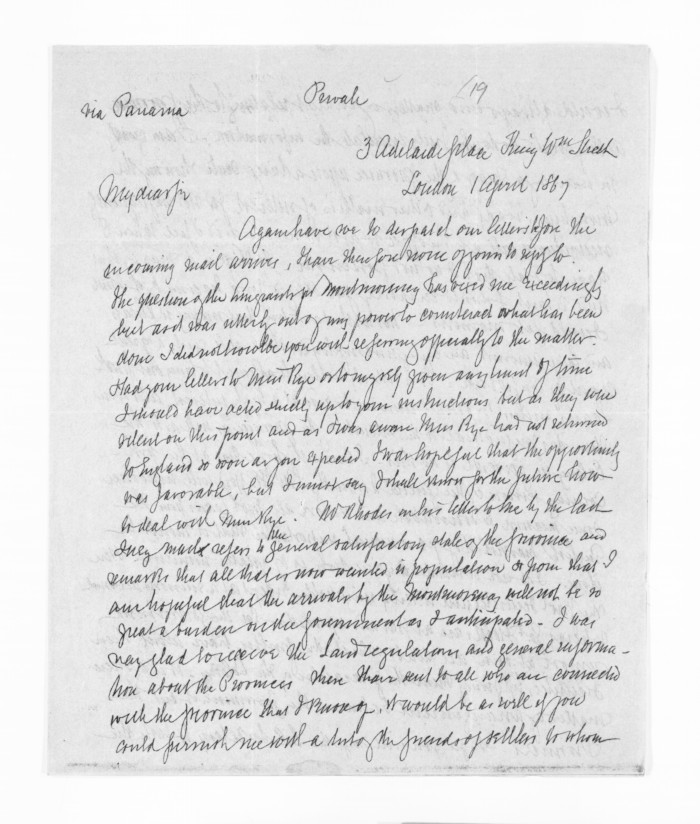 Private
(19
via Panama
3 Adelaide place King Wm Street
London 1 April 1867
My dear Sir
Again have we to despatch our letters before the
incoming mail arrives, I have therefore none of yours to reply to.
The question of the Emigrants per Montmorency has vexed me exceedingly
but as it was utterly out of my power to counteract what has been
done I did not trouble you with referring officially to the matter.
Had your letters to Miss Rye or to myself given any hint of time
I should have acted strictly up to your instructions but as they were
silent on this point and as I was aware Miss Rye had not returned
to England so soon as you expected I was hopeful that the opportunity
was favorable, but I must say I shall know for the future how
to deal with Miss Rye. Mr Rhodes in his letter to me by the last
Suez mail refers to the general satisfactory state of the province and
remarks that all that is now wanted is population so from that I
am hopeful that the arrivals by the Montmorency will not be so
great a burden on the Government as I anticipated - I was
very glad to receive the Land regulations and general informa-
tion about the Provinces these I have sent to all who are connected
with the province that I know of, it would be as well if you
could furnish me with a list of the friends of settlers to whom